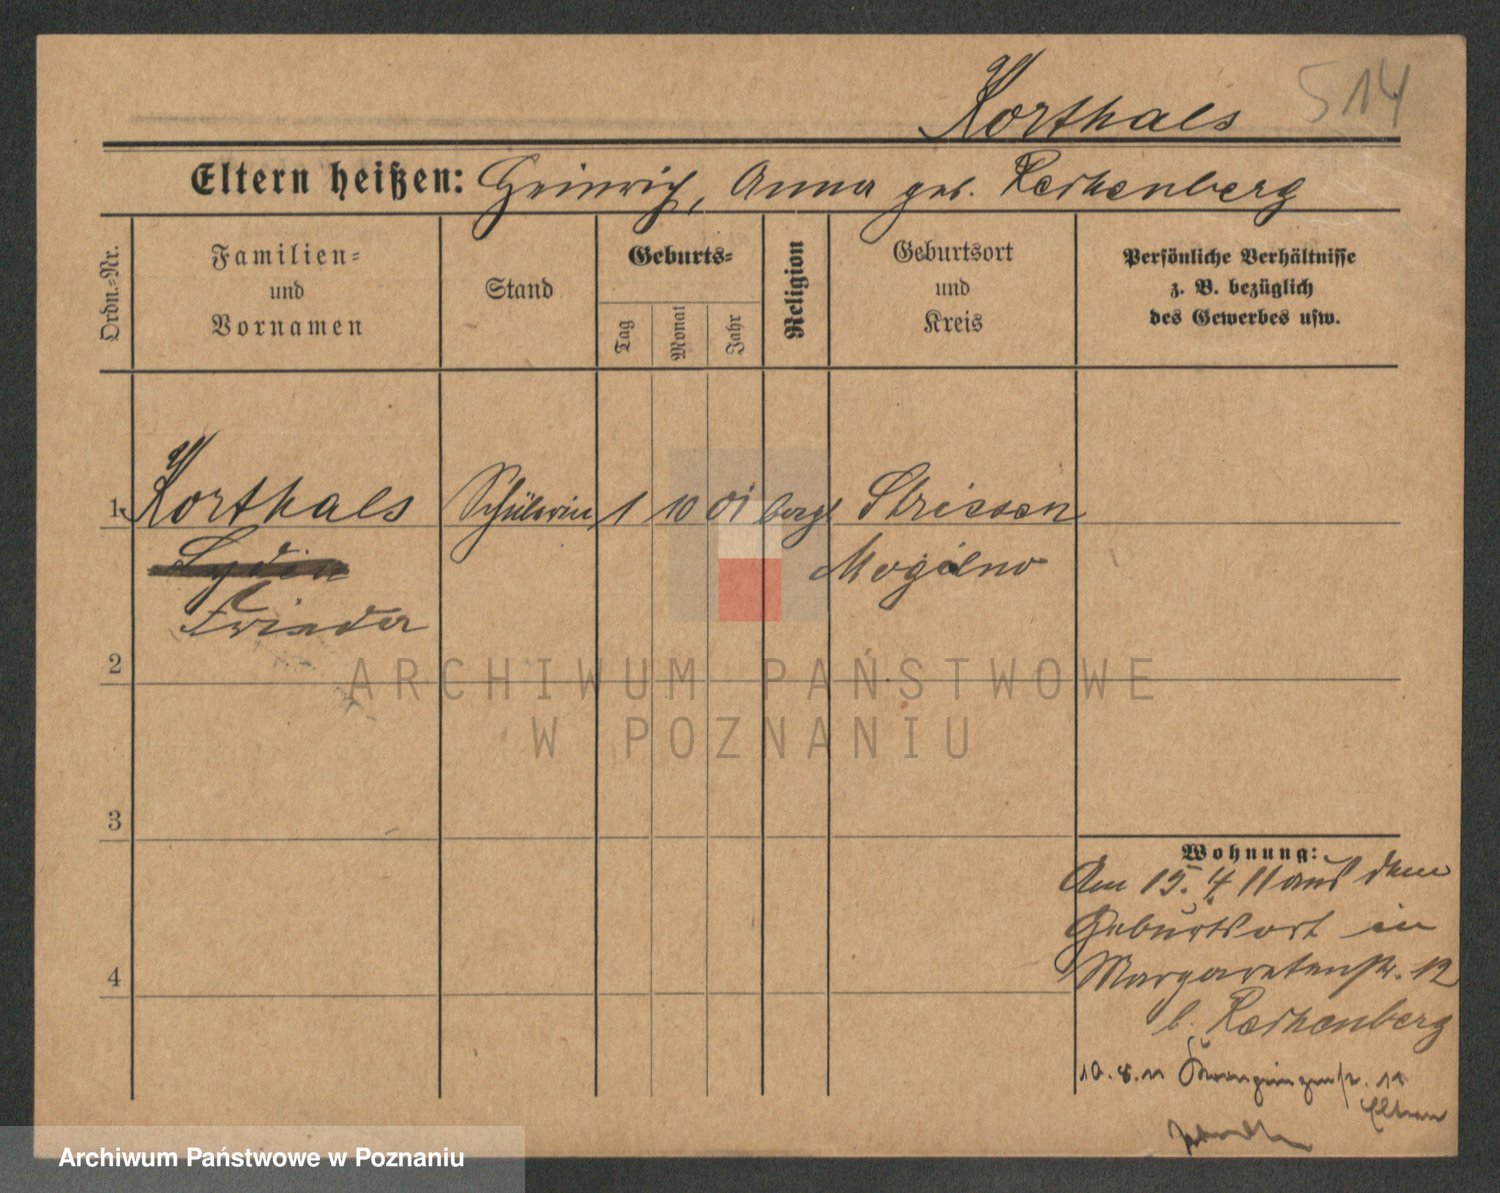 514
Korthals
Eltern heißen: Heinrich, Anna geb. Reichenberg
Ordn.-Nr.
Familien-
und
Vornamen
Stand
Geburts-
Tag
Monat
Jahr
Religion
Geburtsort
und
Kreis
Persönliche Verhältnisse
z. B. bezüglich
des Gewerbes usw.
1. Korthals Schülerin 1 10 01 Strissen
Lydia Mogilno
Frieda
2
ARCHIWUM PAŃSTWOWE
W POZNANIU
3
Wohnung:
Am 15. 4 11 aus dem
Geburtsort in
Margaretenstr. 12
b. Reichenberg
4
10. 8. 11
Eltern
Archiwum Państwowe w Poznaniu